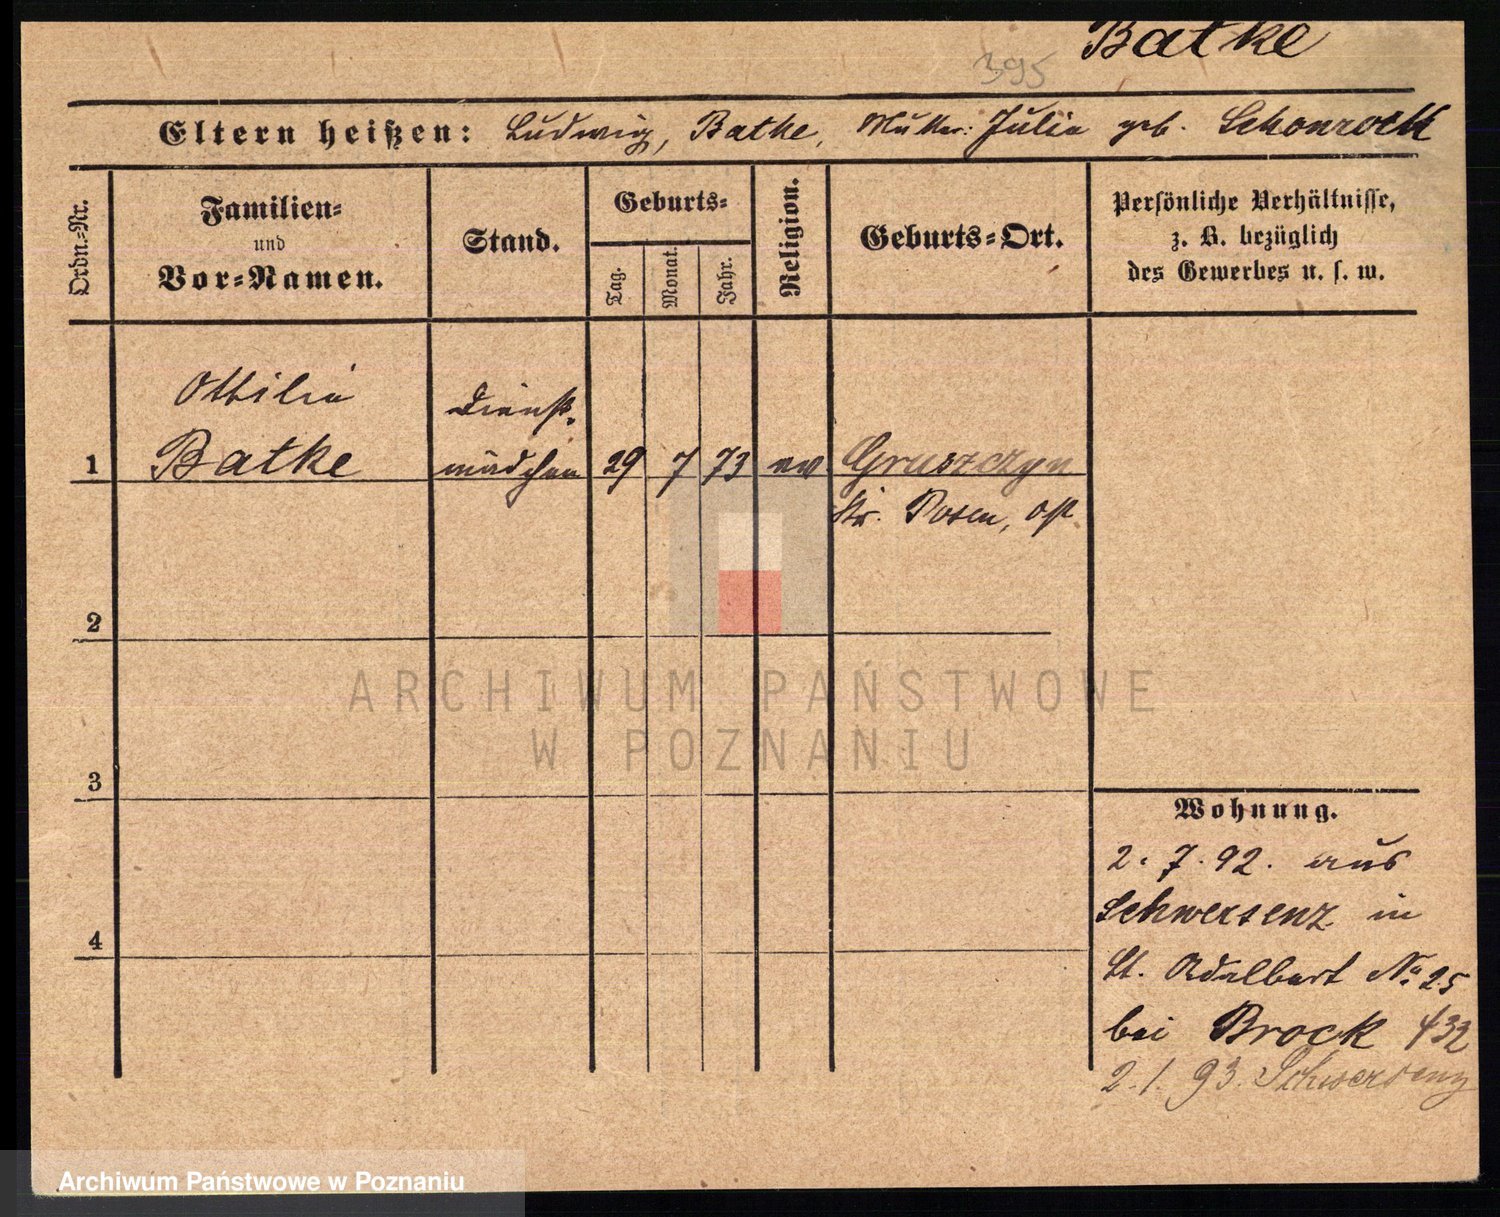 Batke
395
Eltern heißen: Ludwig, Batke, Mutter: Julia geb. Schonrock
Ordn.-Nr.
Familien-
und
Vor-Namen.
Stand.
Geburts-
Tag.
Monat.
Jahr.
Religion.
Geburts-Ort.
Persönliche Verhältnisse,
z. B. bezüglich
des Gewerbes u. s. w.
Ottilie
Dienst-
1 Batke mädchen 29 7 73 ev Gruszczyn
Kr. Posen, Ost
2
ARCHIWUM PAŃSTWOWE
W POZNANIU
3
Wohnung.
2. 7. 92. aus
Schwersenz in
4
St. Adalbert No 25
bei Brock 432
2. 1. 93. Schwersenz
Archiwum Państwowe w Poznaniu